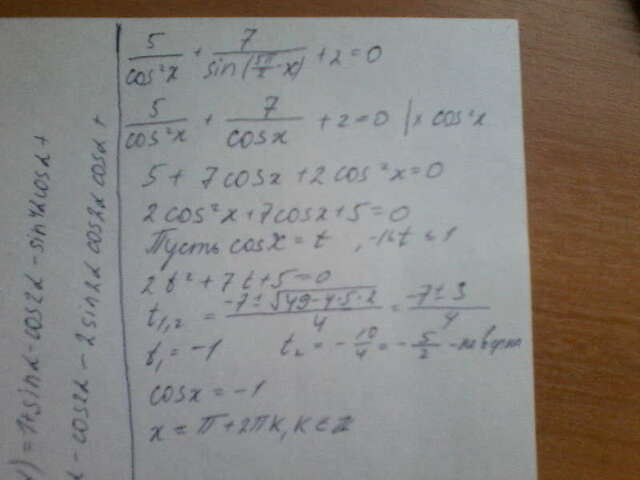 5/cos²x + 7/sin(5π/2 - x) + 2 = 0
5/cos²x + 7/cosx + 2 = 0 | × cos²x
5 + 7cosx + 2cos²x = 0
2cos²x + 7cosx + 5 = 0
Пусть cosx = t , -1≤t≤1
2t² + 7t + 5 = 0
t₁,₂ = (-7 ± √(49-4·5·2))/4 = (-7 ± 3)/4
t₁ = -1 t₂ = -10/4 = -5/2 -
cosx = -1
x = π + 2πk, k ∈ Z
) = 1+sinα-cos2α-sin4αcosα+
α-cos2α-2sin2αcos2αcosα+